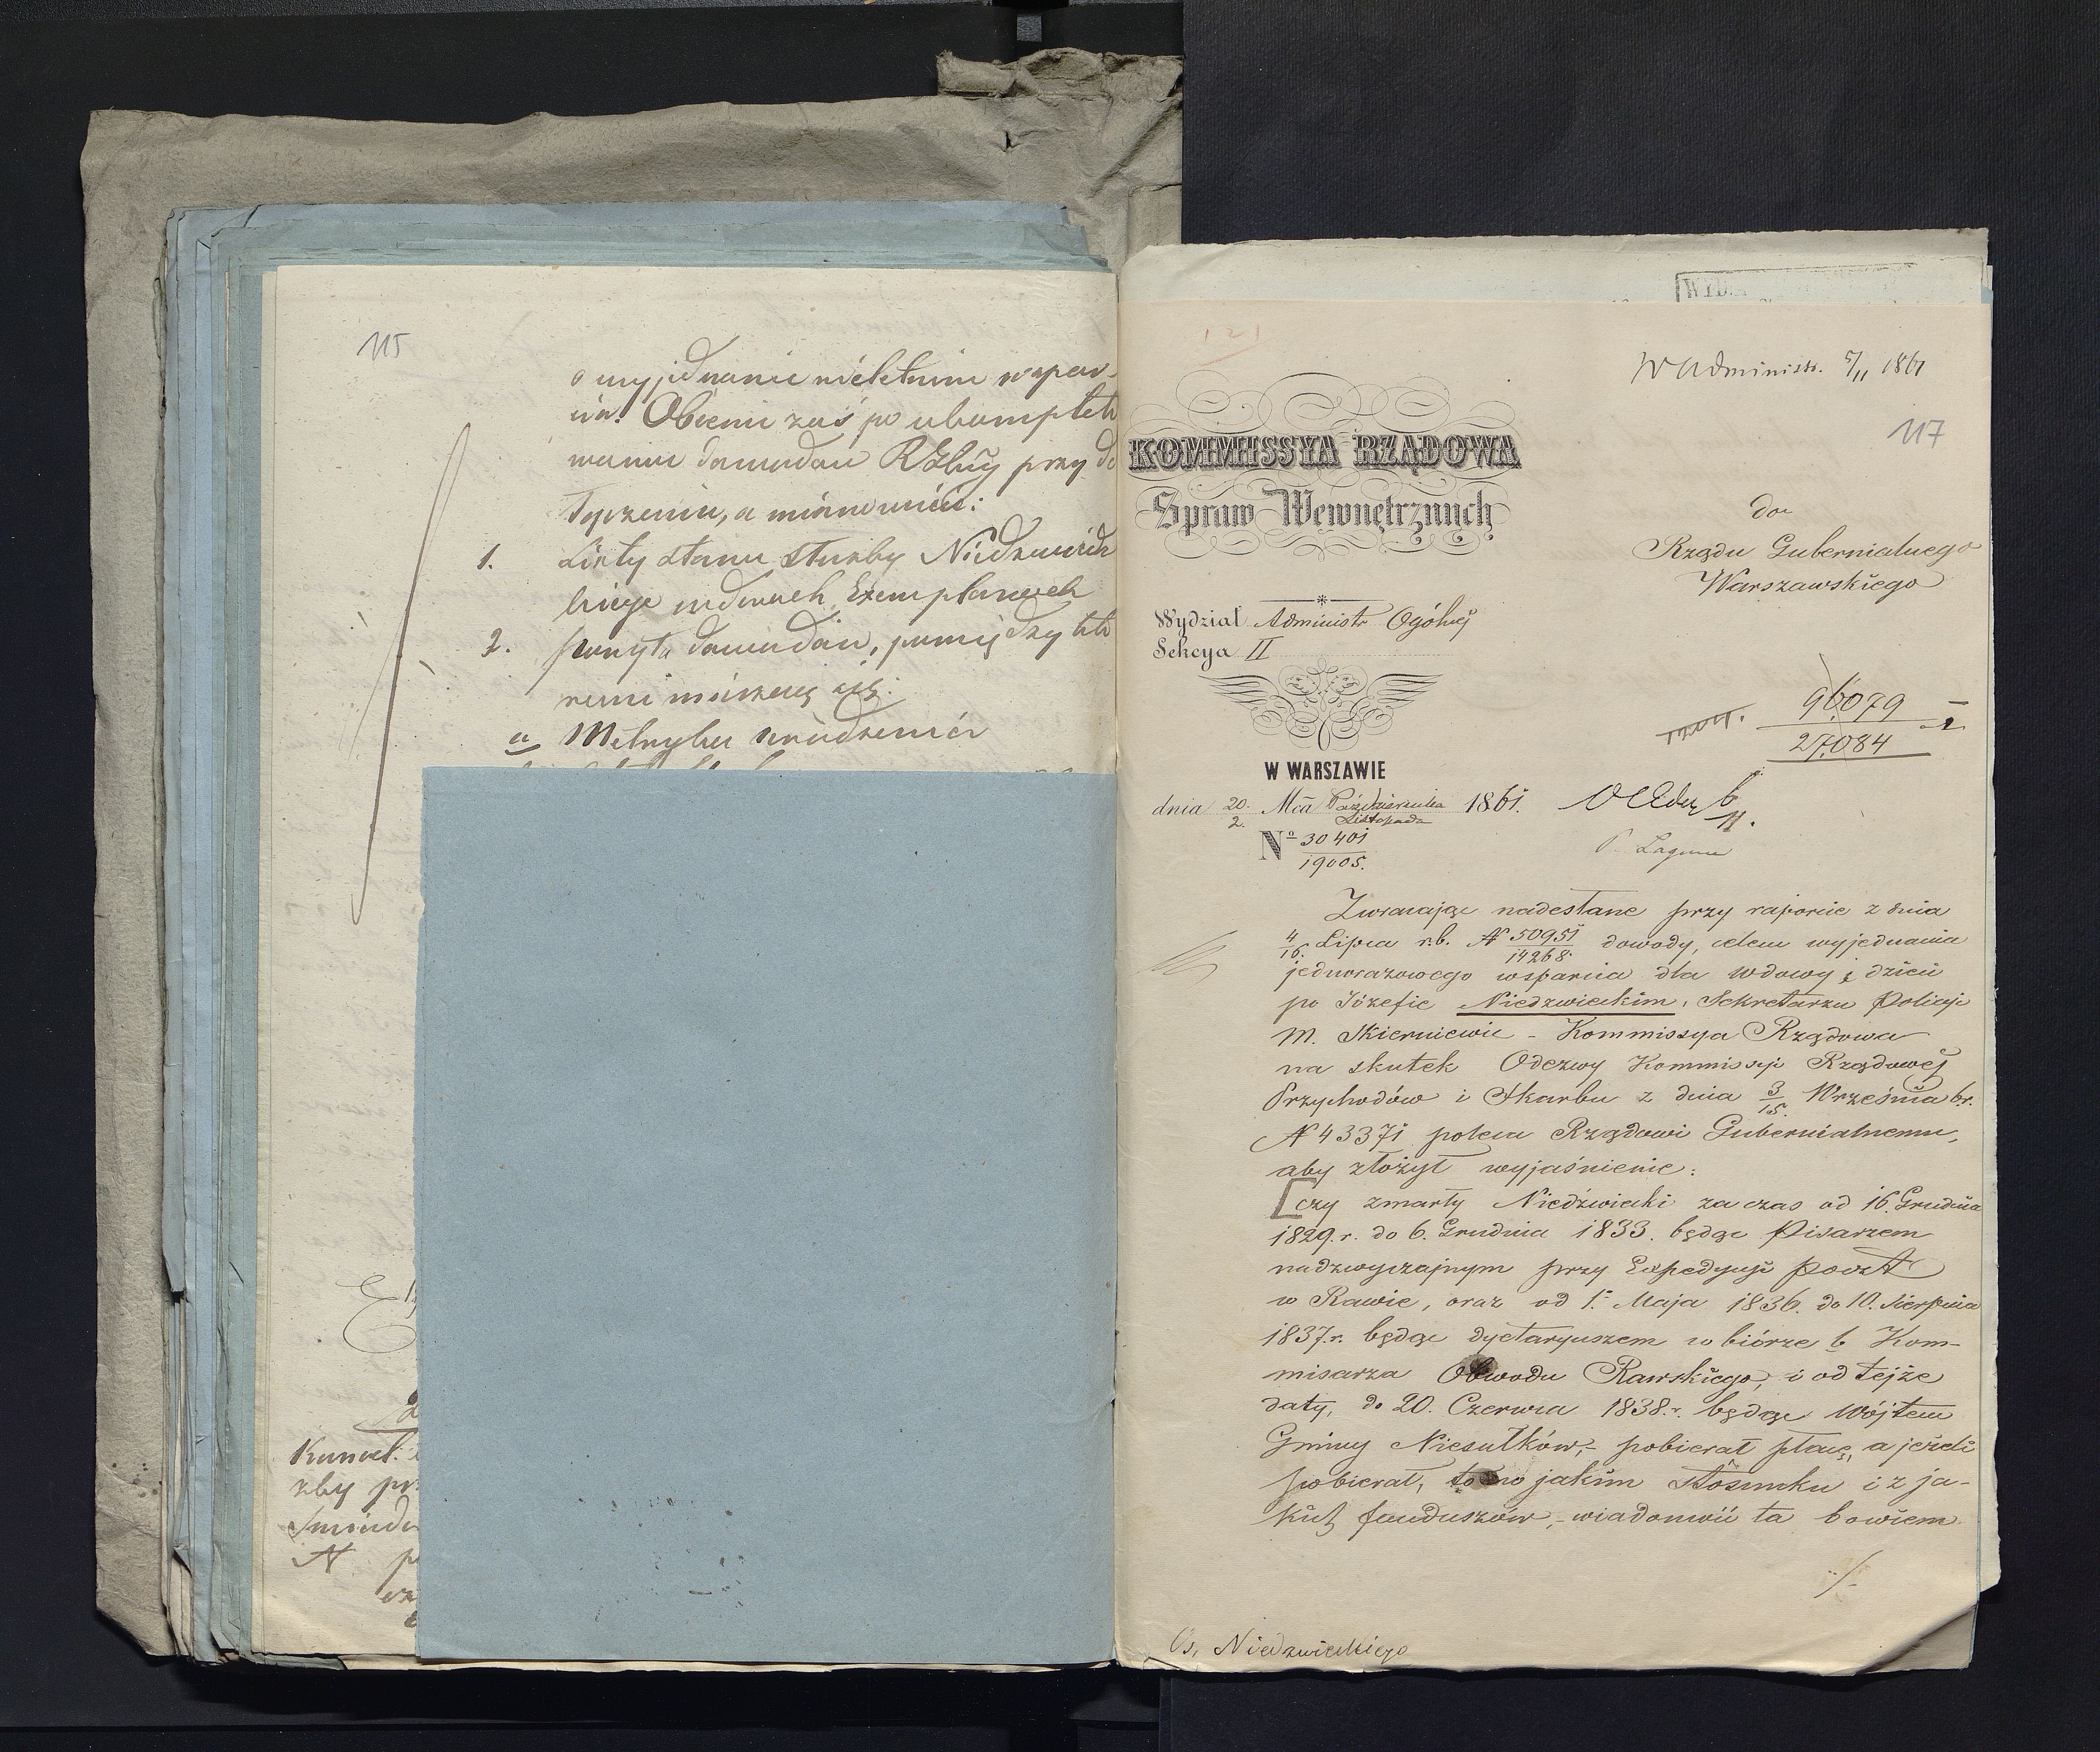 115
o wyjednanie nieletnim wspar-
cia. Obecnie zaś po ukompleto
waniu dowodów RGbny przy do
łączeniu, a mianowicie:
1. Listy stanu służby Niedzwiedz
kiego w dwóch Exemplarzach
2. poszytu dowodów, pomiędzy któ
remi mieszczą się:
a Metryka urodzenia
Kancel.
żby prz
N. p
121
W Administr. 5/11 1861
117
KOMMISSYA RZĄDOWA
Spraw Wewnętrznych
do
Rządu Gubernialnego
Warszawskiego
Wydział Administr Ogólnej
Sekcya II
96079
27084
W WARSZAWIE
dnia 20/2. Mca Października/Listopada 1861.
No 30401/19005.
Zwracając nadesłane przy raporcie z dnia
4/16. Lipca r.b. N 50951/14268 dowody, celem wyjednania
jednorazowego wsparcia dla wdowy i dzieci
po Józefie Niedzwieckim, Sekretarzu Policyi
M. Skierniewic - Kommissya Rządowa
na skutek Odezwy Kommissyi Rządowej
Przychodów i Skarbu z dnia 3/15. Września b.r.
N 43371 poleca Rządowi Gubernialnemu,
aby złożył wyjaśnienie:
czy zmarły Niedźwiecki za czas od 16. Grudnia
1829. r. do 6. Grudnia 1833. będąc Pisarzem
nadzwyczajnym przy Expedycyi Poczt
w Rawie, oraz od 1. Maja 1836. do 10. Sierpnia
1837. r. będąc dyetaryuszem w biórze b. Kom-
misarza Obwodu Rawskiego, i od tejże
daty, do 20. Czerwca 1838. r. będąc Wójtem
Gminy Niesułków, - pobierał płacę, a jeżeli
pobierał, to w jakim stósunku i z ja-
kich funduszów, - wiadomość ta bowiem
./.
Os. Niedzwieckiego